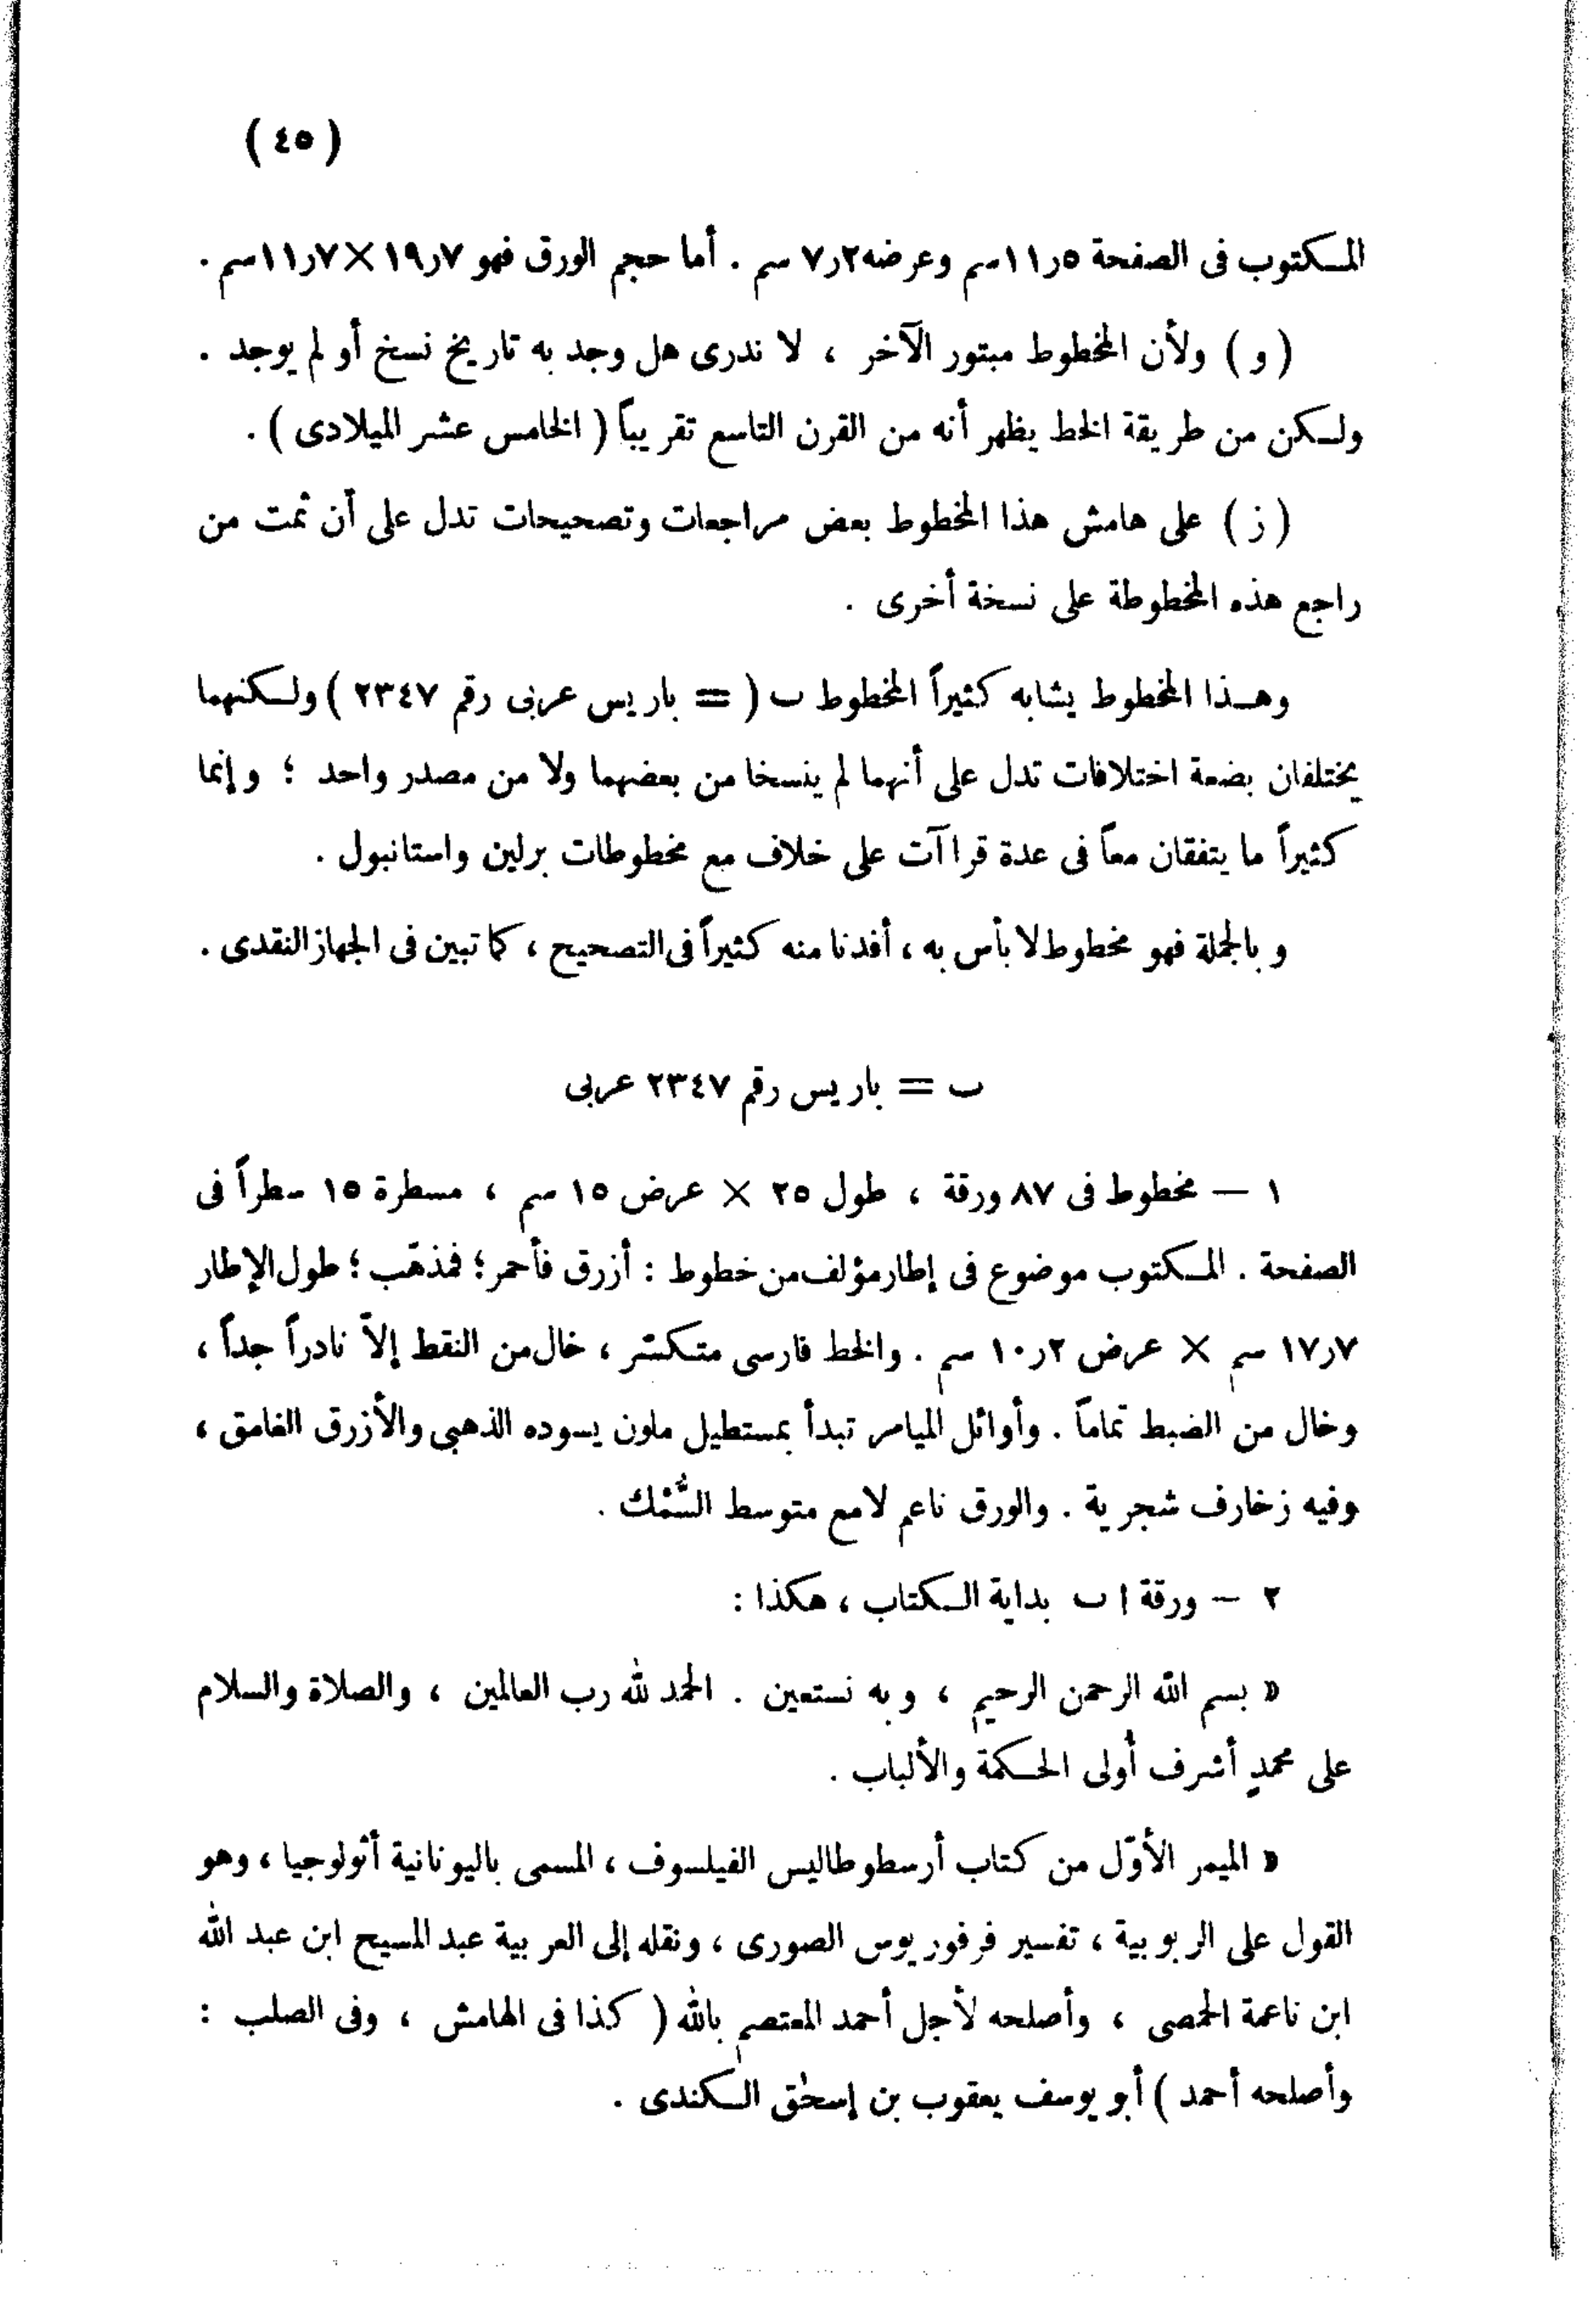 ( ٤٥ )
المكتوب فى الصفحة ٥ر١١سم وعرضه ٢ر٧ سم . أما حجم الورق فهو ٧ر١٩×٧ر١١سم .
( و ) ولأن المخطوط مبتور الآخر ، لا ندرى هل وجد به تاريخ نسخ أو لم يوجد .
ولكن من طريقة الخط يظهر أنه من القرن التاسع تقريباً ( الخامس عشر الميلادى ) .
( ز ) على هامش هذا المخطوط بعض مراجعات وتصحيحات تدل على أن ثمت من
راجع هذه المخطوطة على نسخة أخرى .
وهذا المخطوط يشابه كثيراً المخطوط ب ( = باريس عربى رقم ٢٣٤٧ ) ولكنهما
يختلفان بضعة اختلافات تدل على أنهما لم ينسخا من بعضهما ولا من مصدر واحد ؛ وإنما
كثيراً ما يتفقان معاً فى عدة قراآت على خلاف مع مخطوطات برلين واستانبول .
وبالجملة فهو مخطوط لا بأس به ، أفدنا منه كثيراً فى التصحيح ، كما تبين فى الجهاز النقدى .
ب = باريس رقم ٢٣٤٧ عربى
١ — مخطوط فى ٨٧ ورقة ، طول ٢٥ × عرض ١٥ سم ، مسطرة ١٥ سطراً فى
الصفحة . المكتوب موضوع فى إطار مؤلف من خطوط : أزرق فأحمر ؛ فمذهّب ؛ طول الإطار
٧ر١٧ سم × عرض ٢ر١٠ سم . والخط فارسى متكسّر ، خال من النقط إلاّ نادراً جداً ،
وخال من الضبط تماماً . وأوائل الميامر تبدأ بمستطيل ملون يسوده الذهبى والأزرق الغامق ،
وفيه زخارف شجرية . والورق ناعم لامع متوسط السُّمْك .
٢ — ورقة ١ ب بداية الكتاب ، هكذا :
« بسم الله الرحمن الرحيم ، وبه نستعين . الحمد لله رب العالمين ، والصلاة والسلام
على محمدٍ أشرف أُولى الحكمة والألباب .
« الميمر الأوّل من كتاب أرسطوطاليس الفيلسوف ، المسمى باليونانية أثولوجيا ، وهو
القول على الربوبية ، تفسير فرفوريوس الصورى ، ونقله إلى العربية عبد المسيح ابن عبد الله
ابن ناعمة الحمصى ، وأصلحه لأجل أحمد المعتصم بالله ( كذا فى الهامش ، وفى الصلب :
وأصلحه أحمد ) أبو يوسف يعقوب بن إسحٰق الكندى .